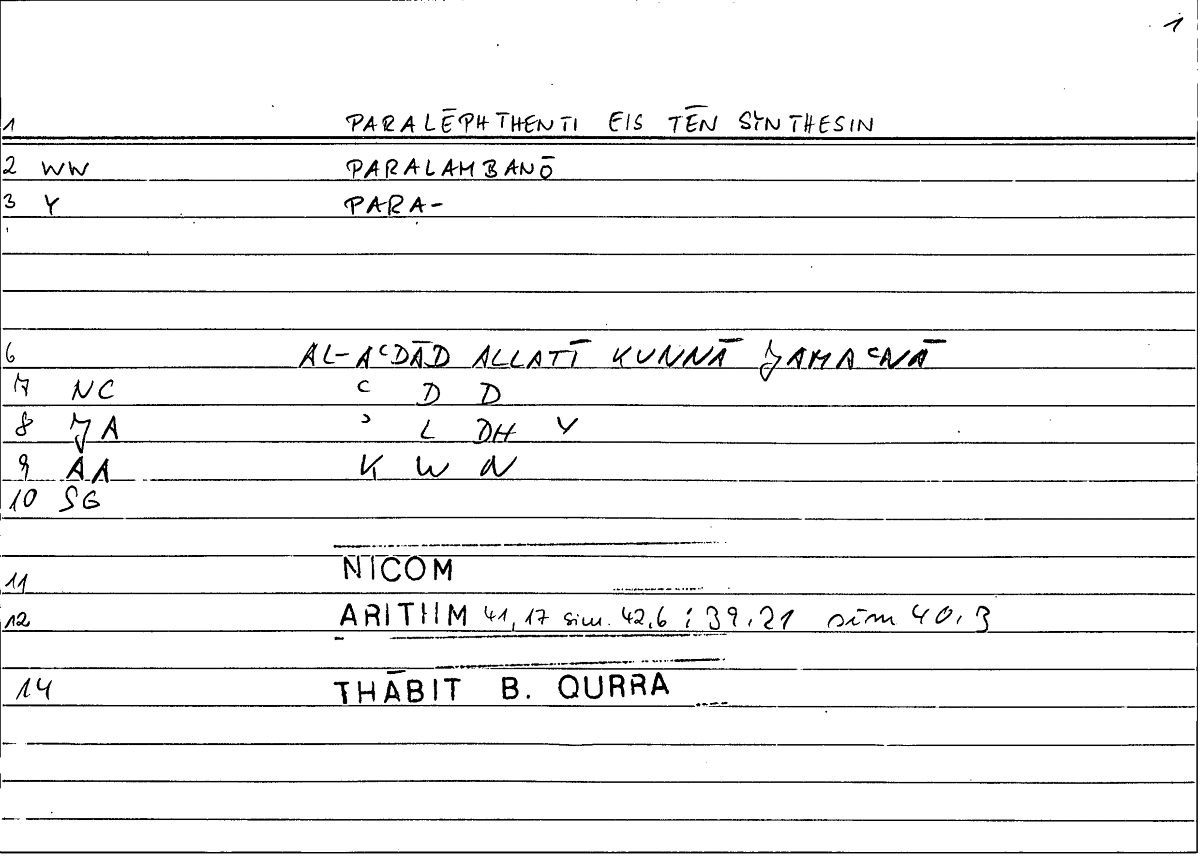 1
1 PARALĒPHTHENTI EIS TĒN SYNTHESIN
2 WW PARALAMBANŌ
3 Y PARA-
6 AL-AʿDĀD ALLATĪ KUNNĀ JAMAʿNĀ
7 NC ʿ D D
8 JA ʾ L DH Y
9 AA K W N
10 SG
11 NICOM
12 ARITHM 41,17 sim. 42,6 ; 39,21 sim 40,3
14 THĀBIT B. QURRA